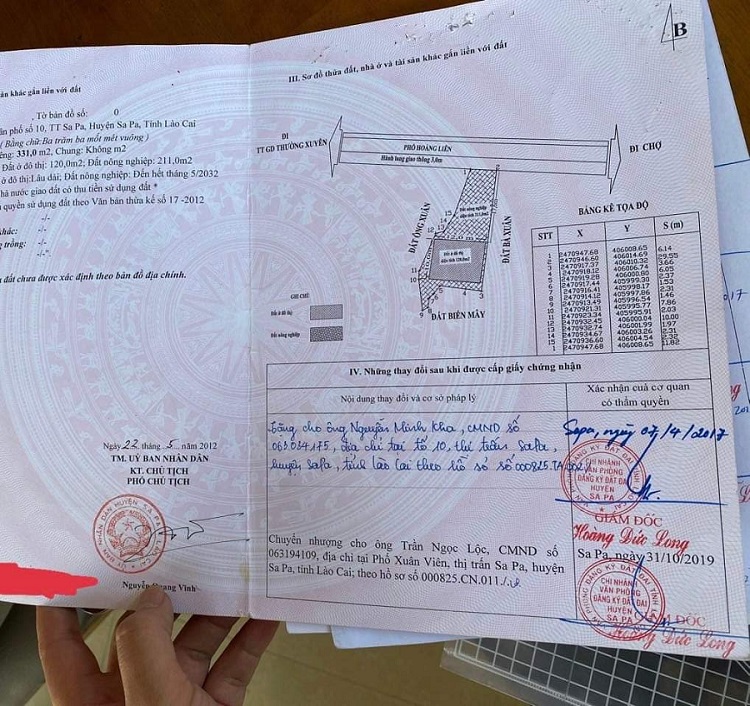 ản khác gắn liền với đất
, Tờ bản đồ số: 0
ân phố số 10, TT Sa Pa, Huyện Sa Pa, Tỉnh Lào Cai
( Bằng chữ: Ba trăm ba mốt mét vuông )
êng: 331,0 m2, Chung: Không m2
Đất ở đô thị: 120,0m2; Đất nông nghiệp: 211,0m2
ở đô thị: Lâu dài; Đất nông nghiệp: Đến hết tháng 5/2032
hà nước giao đất có thu tiền sử dụng đất *
quyền sử dụng đất theo Văn bản thừa kế số 17 -2012
-/-
khác: -/-
g trồng: -/-
-/-
đất chưa được xác định theo bản đồ địa chính.
Ngày 22 tháng 5 năm 2012
TM. UỶ BAN NHÂN DÂN
KT. CHỦ TỊCH
PHÓ CHỦ TỊCH
Nguyễn Quang Vinh
B
III. Sơ đồ thửa đất, nhà ở và tài sản khác gắn liền với đất
ĐI
TT GD THƯỜNG XUYÊN
PHỐ HOÀNG LIÊN
Hành lang giao thông 3,0m
ĐI CHỢ
ĐẤT ÔNG XUÂN
ĐẤT BÀ XUÂN
Đất nông nghiệp
Đất ở đô thị
ĐẤT BIÊN MÂY
GHI CHÚ
Đất ở đô thị
Đất nông nghiệp
BẢNG KÊ TỌA ĐỘ
STT X Y S (m)
1 2470947.68 406008.65 6.14
2 2470946.60 406014.69 29.55
3 2470917.37 406010.32 3.66
4 2470918.12 406006.74 6.05
5 2470919.28 406000.80 2.37
6 2470917.44 405999.30 1.53
7 2470916.41 405998.17 2.31
8 2470914.12 405997.86 1.46
9 2470913.49 405996.54 7.86
10 2470921.31 405995.77 2.03
11 2470923.34 405995.91 10.00
12 2470932.45 406000.04 1.97
13 2470932.74 406001.99 2.31
14 2470934.67 406003.26 2.32
15 2470936.60 406004.54 11.82
1 2470947.68 406008.65
IV. Những thay đổi sau khi được cấp giấy chứng nhận
Nội dung thay đổi và cơ sở pháp lý
Xác nhận của cơ quan
có thẩm quyền
Tặng cho ông Nguyễn Minh Kha, CMND số
063034175, địa chỉ tại tổ 10, thị trấn SaPa,
huyện SaPa, tỉnh Lào Cai theo hồ sơ số 000825.TA.002
Sapa, ngày 07/4/2017
CHI NHÁNH
VĂN PHÒNG
ĐĂNG KÝ ĐẤT ĐAI
HUYỆN
SA PA
GIÁM ĐỐC
Hoàng Đức Long
Chuyển nhượng cho ông Trần Ngọc Lộc, CMND số
063194109, địa chỉ tại Phố Xuân Viên, thị trấn Sa Pa, huyện
Sa Pa, tỉnh Lào Cai; theo hồ sơ số 000825.CN.011./.
Sa Pa, ngày 31/10/2019
CHI NHÁNH
VĂN PHÒNG
ĐĂNG KÝ ĐẤT ĐAI
HUYỆN
SA PA
ĐỐC
Hoàng Đức Long